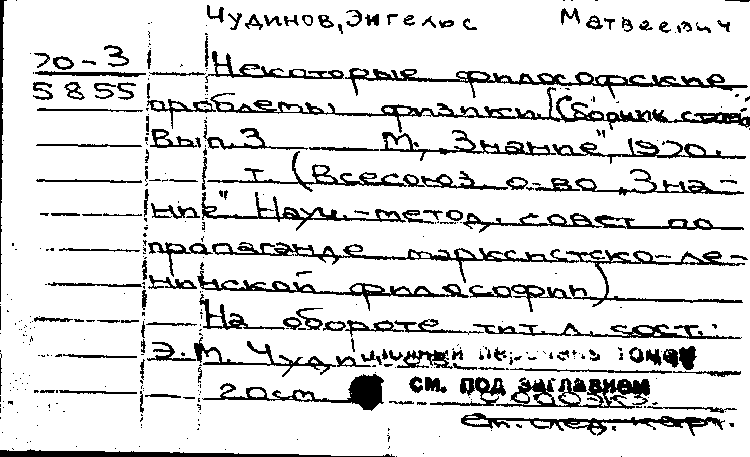 Чудинов, Энгельс Матвеевич
70-3
5855
Некоторые философские
проблемы физики. (Сборник статей)
Вып. 3 М., "Знание", 1970.
т. (Всесоюз. о-во "Зна-
ние". Науч.-метод. совет по
пропаганде марксистско-ле-
нинской философии).
На обороте тит. л. сост.:
Э. М. Чудинов
перечень томов
20 см
см. под заглавием
См. след. карт.